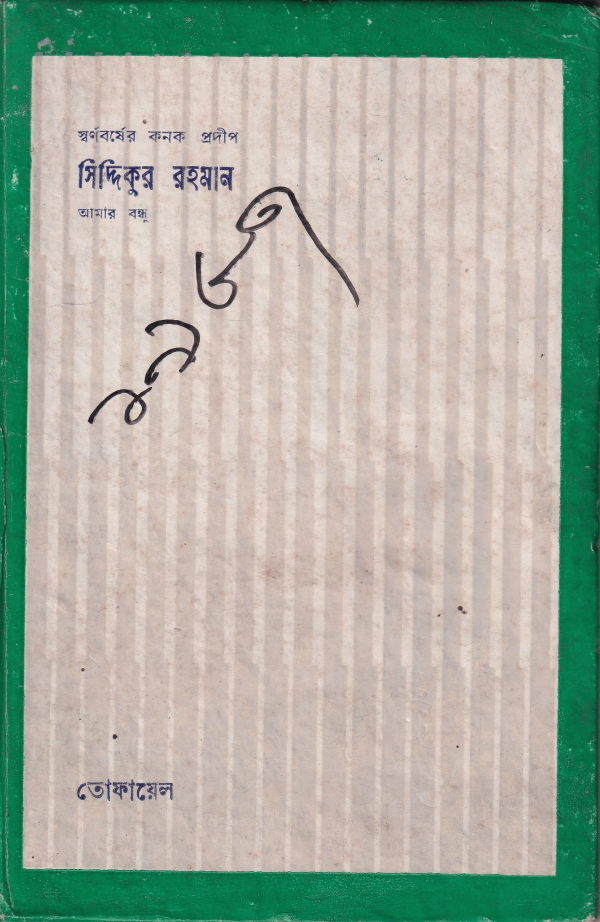 স্বর্ণবর্ষের কনক প্রদীপ
সিদ্দিকুর রহমান
আমার বন্ধু
তোফায়েল